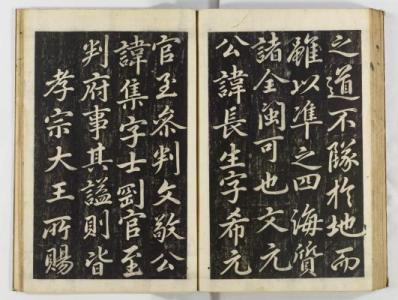 之道不隊於地而
雖以準之四海質
諸全閩可也文元
公諱長生字希元
官至参判文敬公
諱集字士剛官至
判府事其謚則皆
孝宗大王所賜